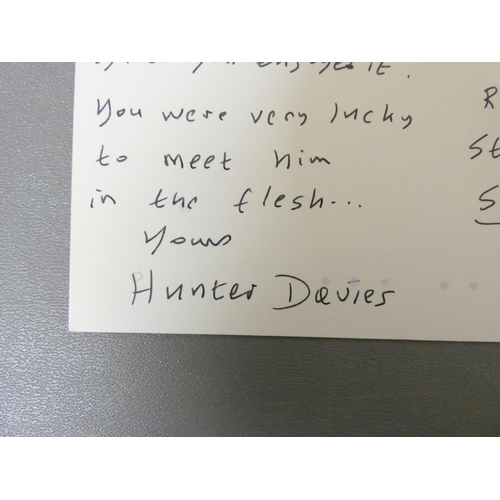 you enjoyed it.
You were very lucky
to meet him
in the flesh...
Yours
Hunter Davies
R
St
S